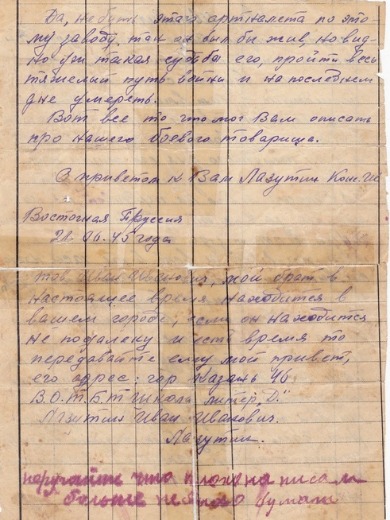 Да, не будь этого артналета по это-
му заводу, так он был бы жив, но вид-
но уж такая судьба его, пройти весь
тяжелый путь войны и на последнем
дне умереть.
Вот все то что мог Вам описать
про нашего боевого товарища.
С приветом к Вам Лазутин
Восточная Пруссия
21.06.45 года
тов. Иван мой брат в
настоящее время находится в
вашем городе, если он находится
не подалеку и есть время то
передавайте ему мой привет,
его адрес: гор Казань 46
В.О.Т.Б.Т школа литер "О"
Лазутин Иван Иванович.
Лазутин.
что плохо написал
больше не было бумаги